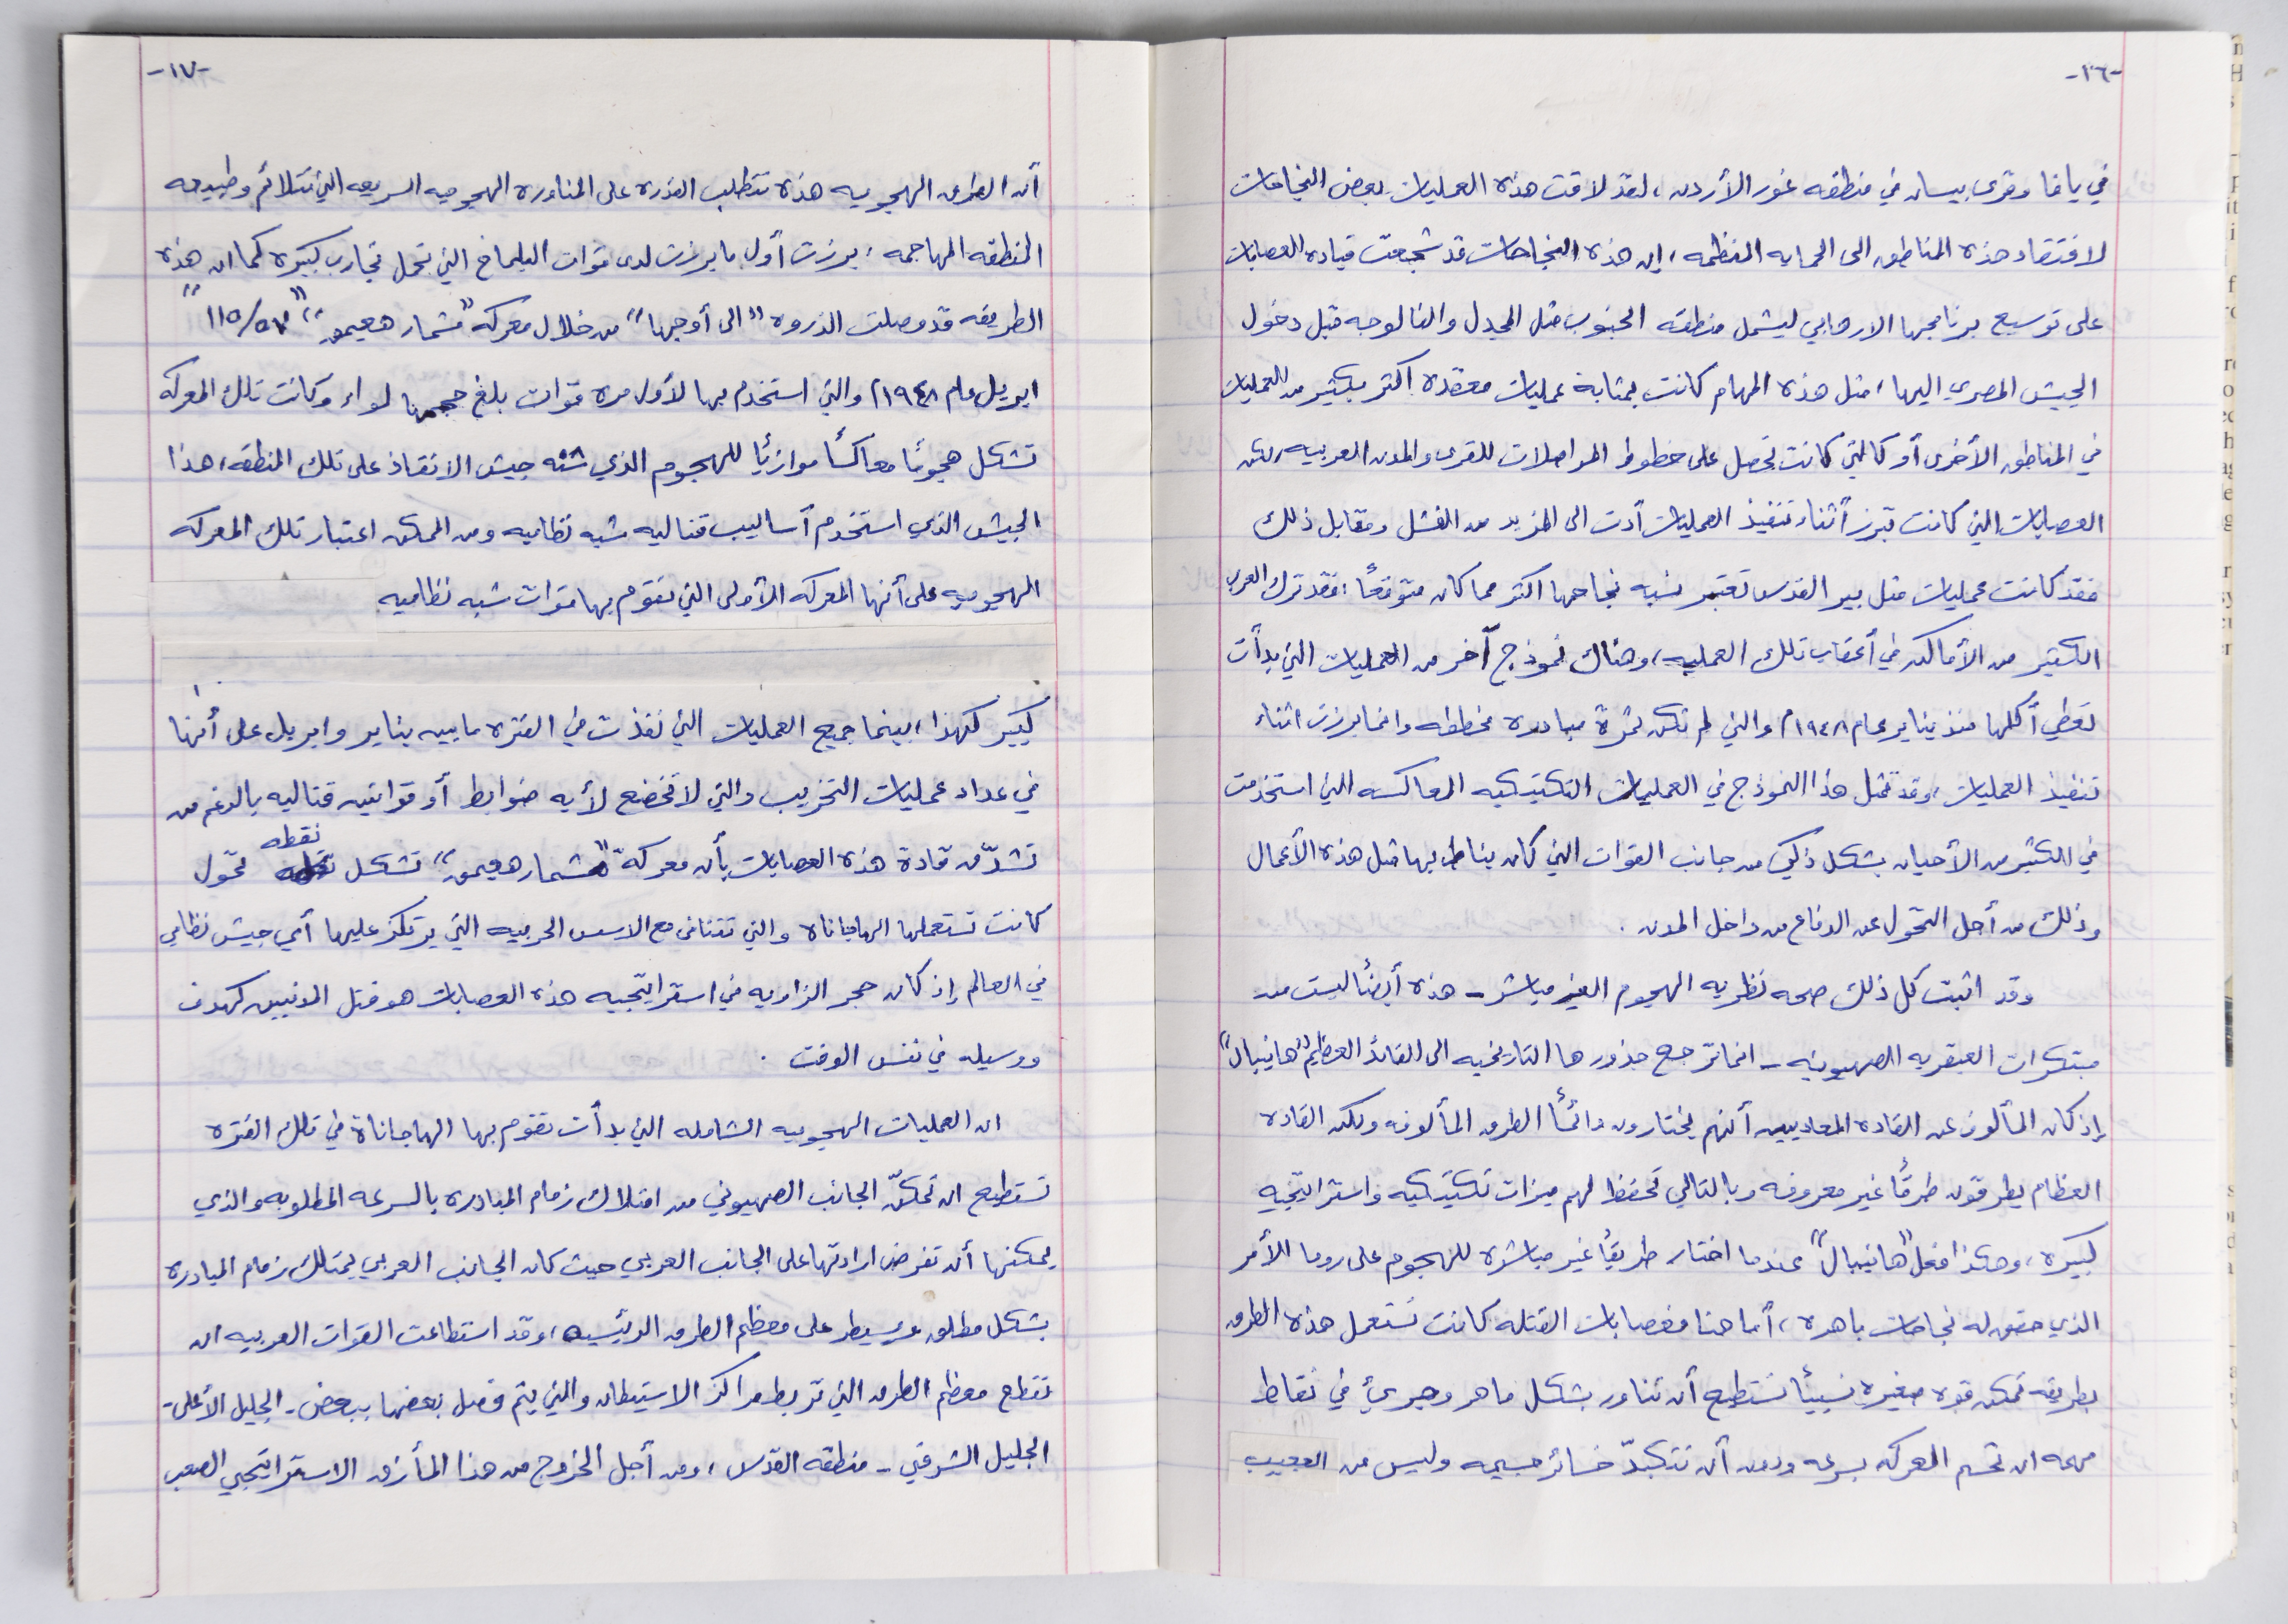 -١٦-
في يافا وقرى بيسان في منطقه غور الأردن، لقد لاقت هذه العمليات بعض النجاحات
لافتقاد هذه المناطق الى الحمايه المنظمه، إن هذه النجاحات قد شجعت قياده العصابات
على توسيع برنامجها الارهابي ليشمل منطقه الجنوب مثل المجدل والفالوجه قبل دخول
الجيش المصري اليها، مثل هذه المهام كانت بمثابة عمليات معقده اكثر بكثير من العمليات
في المناطق الأخرى أو كالتي كانت تحصل على خطوط المواصلات للقرى والمدن العربيه، لكن
العصابات التي كانت تبرز أثناء تنفيذ العمليات أدت الى المزيد من الفشل ومقابل ذلك
فقد كانت عمليات مثل بير القدس تعتبر نسبه نجاحها اكثر مما كان متوقعًا، فقد ترك العرب
الكثير من الأماكن في أعقاب تلك العمليه، وهناك نموذج آخر من العمليات التي بدأت
تعطي أكلها منذ يناير عام ١٩٤٨م والتي لم تكن ثمرة مبادره مخططه وانما برزت اثناء
تنفيذ العمليات، وقد تمثل هذا النموذج في العمليات التكتيكيه المعاكسه التي استخدمت
في الكثير من الأحيان بشكل ذكي من جانب القوات التي كان يناط بها مثل هذه الأعمال
وذلك من أجل التحول عن الدفاع من داخل المدن.
وقد اثبت كل ذلك صحه نظريه الهجوم الغير مباشر - هذه أيضًا ليست من
مبتكرات العبقريه الصهيونيه - انما ترجع جذورها التاريخيه الى القائد العظيم "هانيبال"
إذ كان المألوف عن القاده المعاديين أنهم يختارون دائمًا الطرق المألوفه ولكن القاده
العظام يطرقون طرقًا غير معروفه وبالتالي تحفظ لهم ميزات تكتيكيه واستراتيجيه
كبيره، وهكذا فعل "هانيبال" عندما اختار طريقًا غير مباشره للهجوم على روما الأمر
الذي حقق له نجاحات باهره، أما هنا فعصابات القتله كانت تستعمل هذه الطرق
بطريقه تمكن قوه صغيره نسبيًا تستطيع أن تناور بشكل ماهر وجريء في نقاط
مهمه ان تحسم المعركه بسرعه ودون أن تتكبدّ خسائر جسيمه وليس من العجيب
-١٧-
أن الطرق الهجوميه هذه تتطلب القدره على المناوره الهجوميه السريعه التي تتلائم وطبيعه
المنطقه المهاجمه، برزت أول ما برزت لدى قوات البلماخ التي تحمل تجارب كبيره كما ان هذه
الطريقه قد وصلت الذروه "الى أوجها" من خلال معركه "مشمار هعيمق" "٥٧/١١٥"
ابريل عام ١٩٤٨م والتي استخدم بها لأول مره قوات بلغ حجمها لواء وكانت تلك المعركه
تشكل هجومًا معاكسًا موازيًا للهجوم الذي شنه جيش الانقاذ على تلك المنطقه، هذا
الجيش الذي استخدم أساليب قتاليه شبه نظاميه ومن الممكن اعتبار تلك المعركه
الهجوميه على أنها المعركه الأولى التي تقوم بها قوات شبه نظاميه
كبير كهذا، بينما جميع العمليات التي نفذت في الفتره ما بين يناير وابريل على أنها
في عداد عمليات التخريب والتي لا تخضع لأيه ضوابط أو قوانين قتاليه بالرغم من
تشدّق قادة هذه العصابات بأن معركة "مشمار هعيمق" تشكل نقطه تحول
كانت تستعملها الهاجاناه والتي تتنافى مع الاسس الحربيه التي يرتكز عليها أي جيش نظامي
في العالم إذ كان حجر الزاويه في استراتيجيه هذه العصابات هو قتل المدنيين كهدف
ووسيله في نفس الوقت.
ان العمليات الهجوميه الشامله التي بدأت تقوم بها الهاجاناة في تلك الفتره
تستطيع ان تمكنّ الجانب الصهيوني من امتلاك زمام المبادره بالسرعه المطلوبه والذي
يمكنها أن تفرض ارادتها على الجانب العربي حيث كان الجانب العربي يمتلك زمام المبادره
بشكل مطلق ويسيطر على معظم الطرق الرئيسيه، وقد استطاعت القوات العربيه ان
تقطع معظم الطرق التي تربط مراكز الاستيطان والتي يتم فصل بعضها ببعض - الجليل الأعلى -
الجليل الشرقي - منطقه القدس، ومن أجل الخروج من هذا المأزق الاستراتيجي الصعب